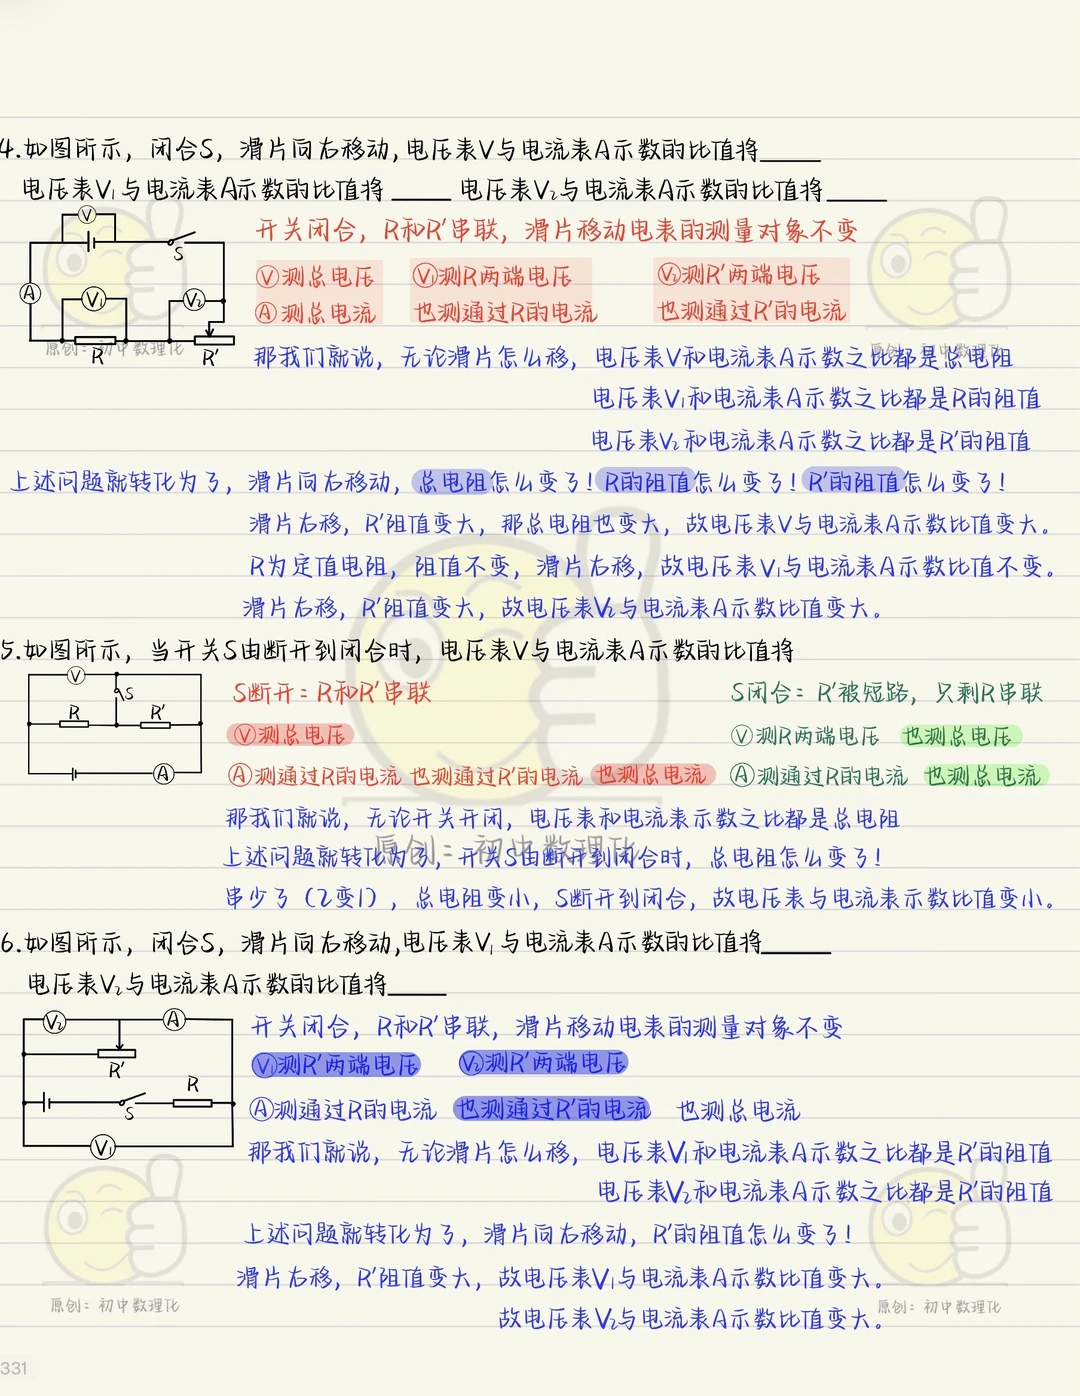 4.如图所示，闭合S，滑片向右移动,电压表V与电流表A示数的比值将_____
电压表V₁与电流表A示数的比值将_____ 电压表V₂与电流表A示数的比值将_____
V
S
A
V₁
V₂
R
R′
开关闭合，R和R′串联，滑片移动电表的测量对象不变
Ⓥ测总电压 V₁测R两端电压 V₂测R′两端电压
Ⓐ测总电流 也测通过R的电流 也测通过R′的电流
原创：初中数理化
原创：初中数理化
那我们就说，无论滑片怎么移，电压表V和电流表A示数之比都是总电阻
电压表V₁和电流表A示数之比都是R的阻值
电压表V₂和电流表A示数之比都是R′的阻值
上述问题就转化为了，滑片向右移动，总电阻怎么变了！R的阻值怎么变了！R′的阻值怎么变了！
滑片右移，R′阻值变大，那总电阻也变大，故电压表V与电流表A示数比值变大。
R为定值电阻，阻值不变，滑片右移，故电压表V₁与电流表A示数比值不变。
滑片右移，R′阻值变大，故电压表V₂与电流表A示数比值变大。
5.如图所示，当开关S由断开到闭合时，电压表V与电流表A示数的比值将
V
S
R
R′
A
S断开：R和R′串联 S闭合：R′被短路，只剩R串联
Ⓥ测总电压 Ⓥ测R两端电压 也测总电压
Ⓐ测通过R的电流 也测通过R′的电流 也测总电流 Ⓐ测通过R的电流 也测总电流
那我们就说，无论开关开闭，电压表和电流表示数之比都是总电阻
原创：初中数理化
上述问题就转化为了，开关S由断开到闭合时，总电阻怎么变了！
串少了（2变1），总电阻变小，S断开到闭合，故电压表与电流表示数比值变小。
6.如图所示，闭合S，滑片向右移动,电压表V₁与电流表A示数的比值将_____
电压表V₂与电流表A示数的比值将_____
V₂
A
R′
R
S
V₁
开关闭合，R和R′串联，滑片移动电表的测量对象不变
V₁测R′两端电压 V₂测R′两端电压
Ⓐ测通过R的电流 也测通过R′的电流 也测总电流
那我们就说，无论滑片怎么移，电压表V₁和电流表A示数之比都是R′的阻值
电压表V₂和电流表A示数之比都是R′的阻值
上述问题就转化为了，滑片向右移动，R′的阻值怎么变了！
滑片右移，R′阻值变大，故电压表V₁与电流表A示数比值变大。
原创：初中数理化
原创：初中数理化
故电压表V₂与电流表A示数比值变大。
331